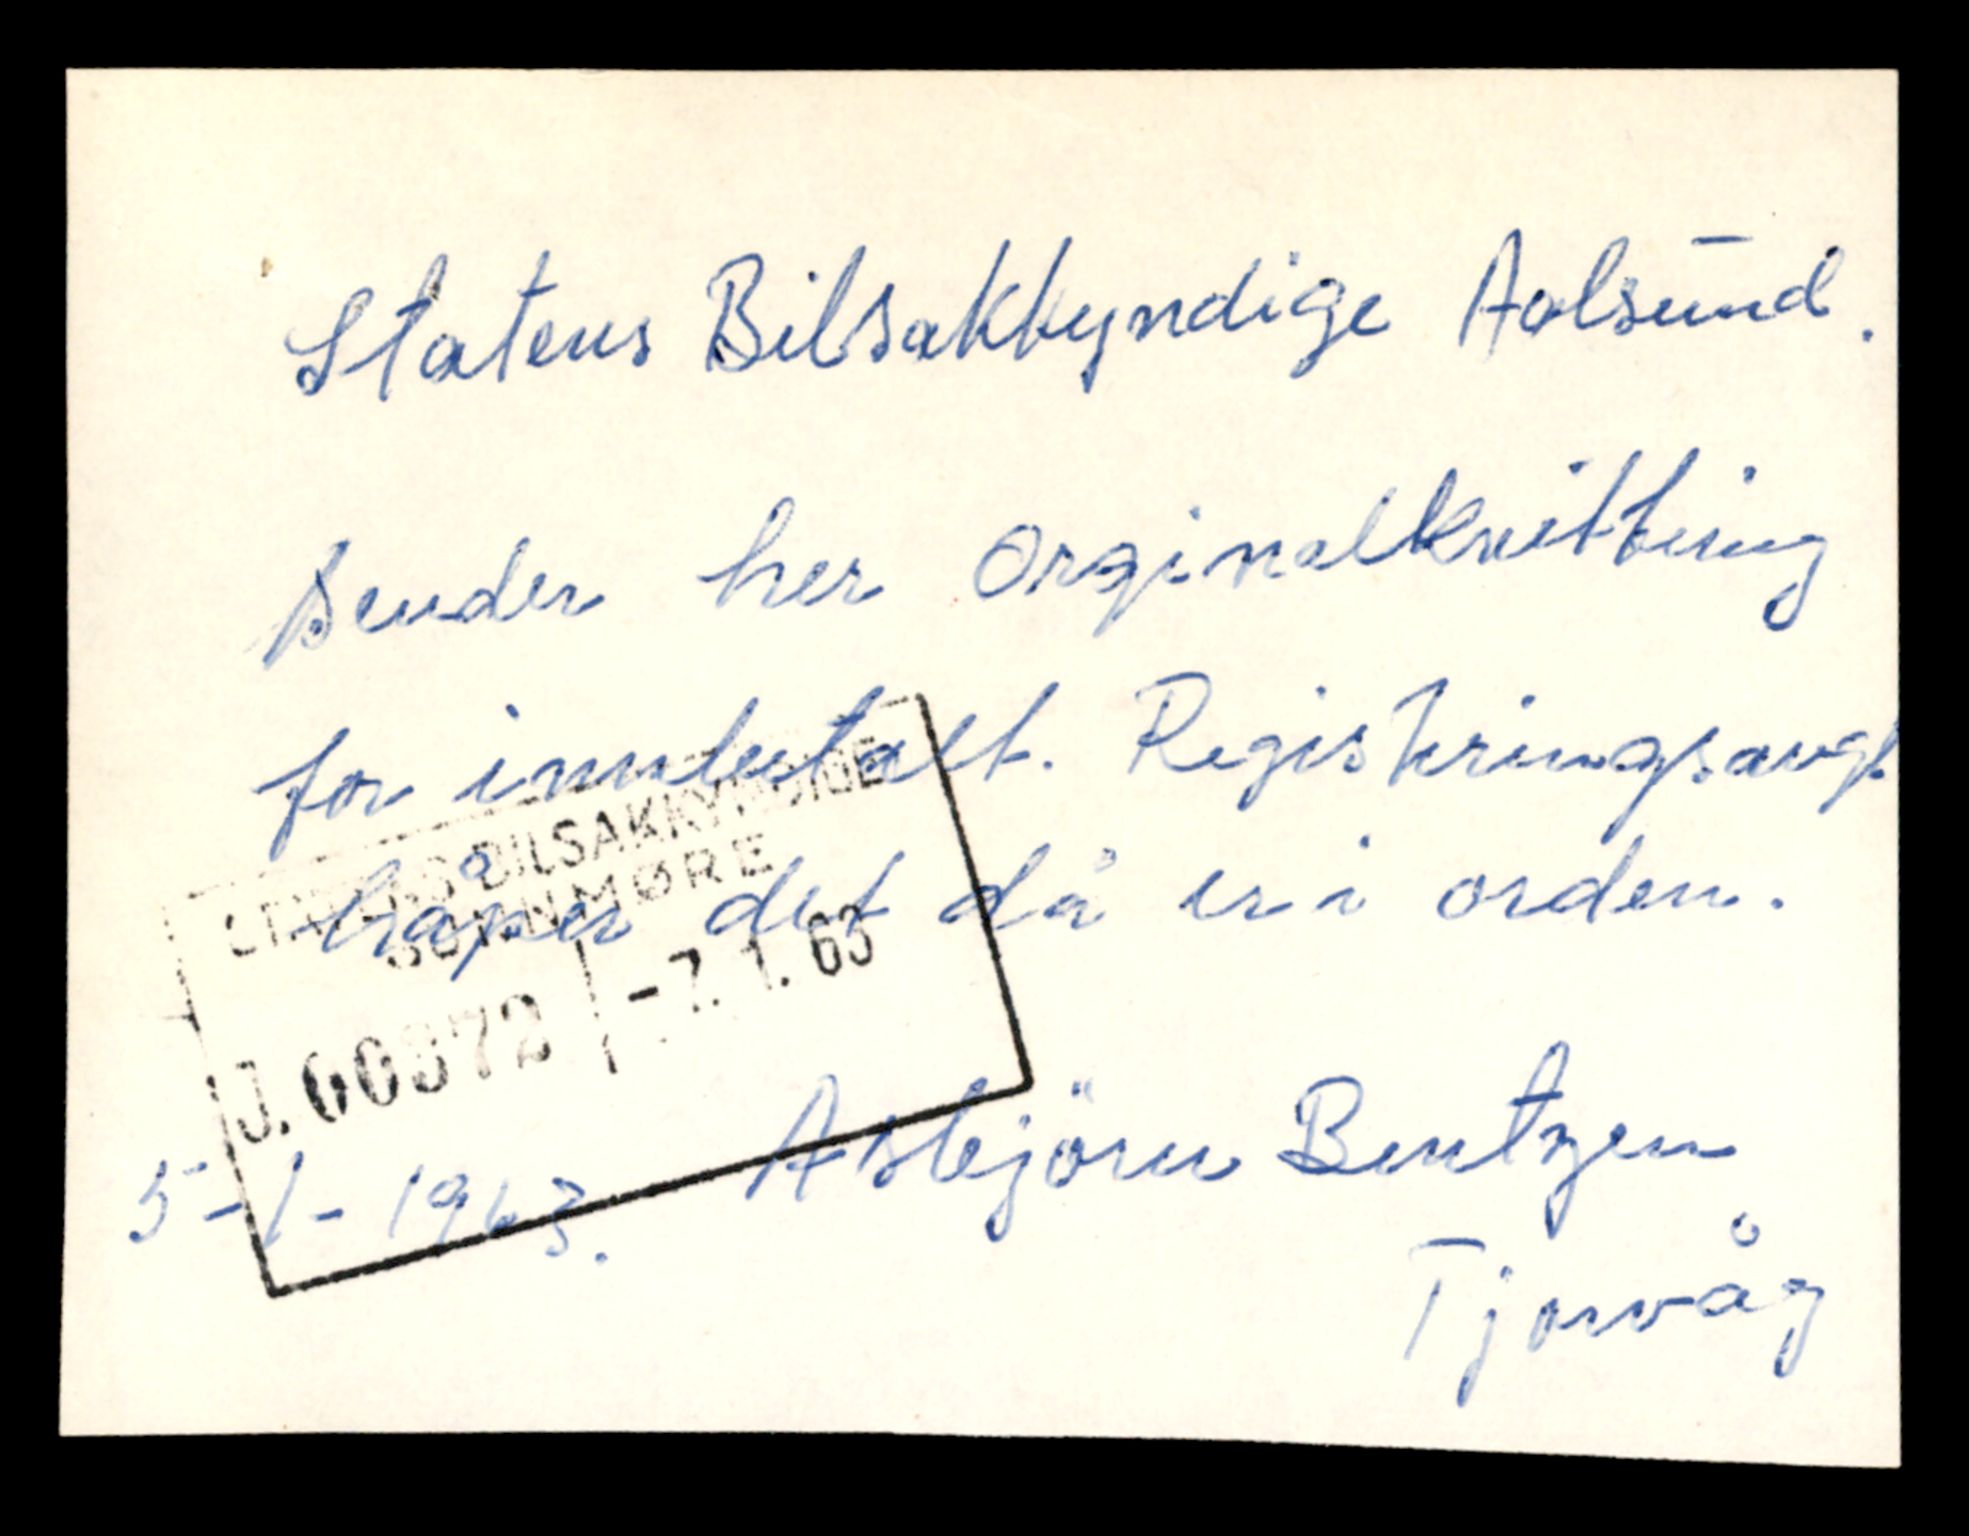 Statens Bilsakkyndige Aalsund.
Sender her Orginalkvittering
for innbetalt. Registringsavgf
håper det då er i orden.
STATENS BILSAKKYNDIGE
SUNNMØRE
J. 00372 -7. 1. 63
5-1-1963. Asbjörn Bentzen
Tjørvåg